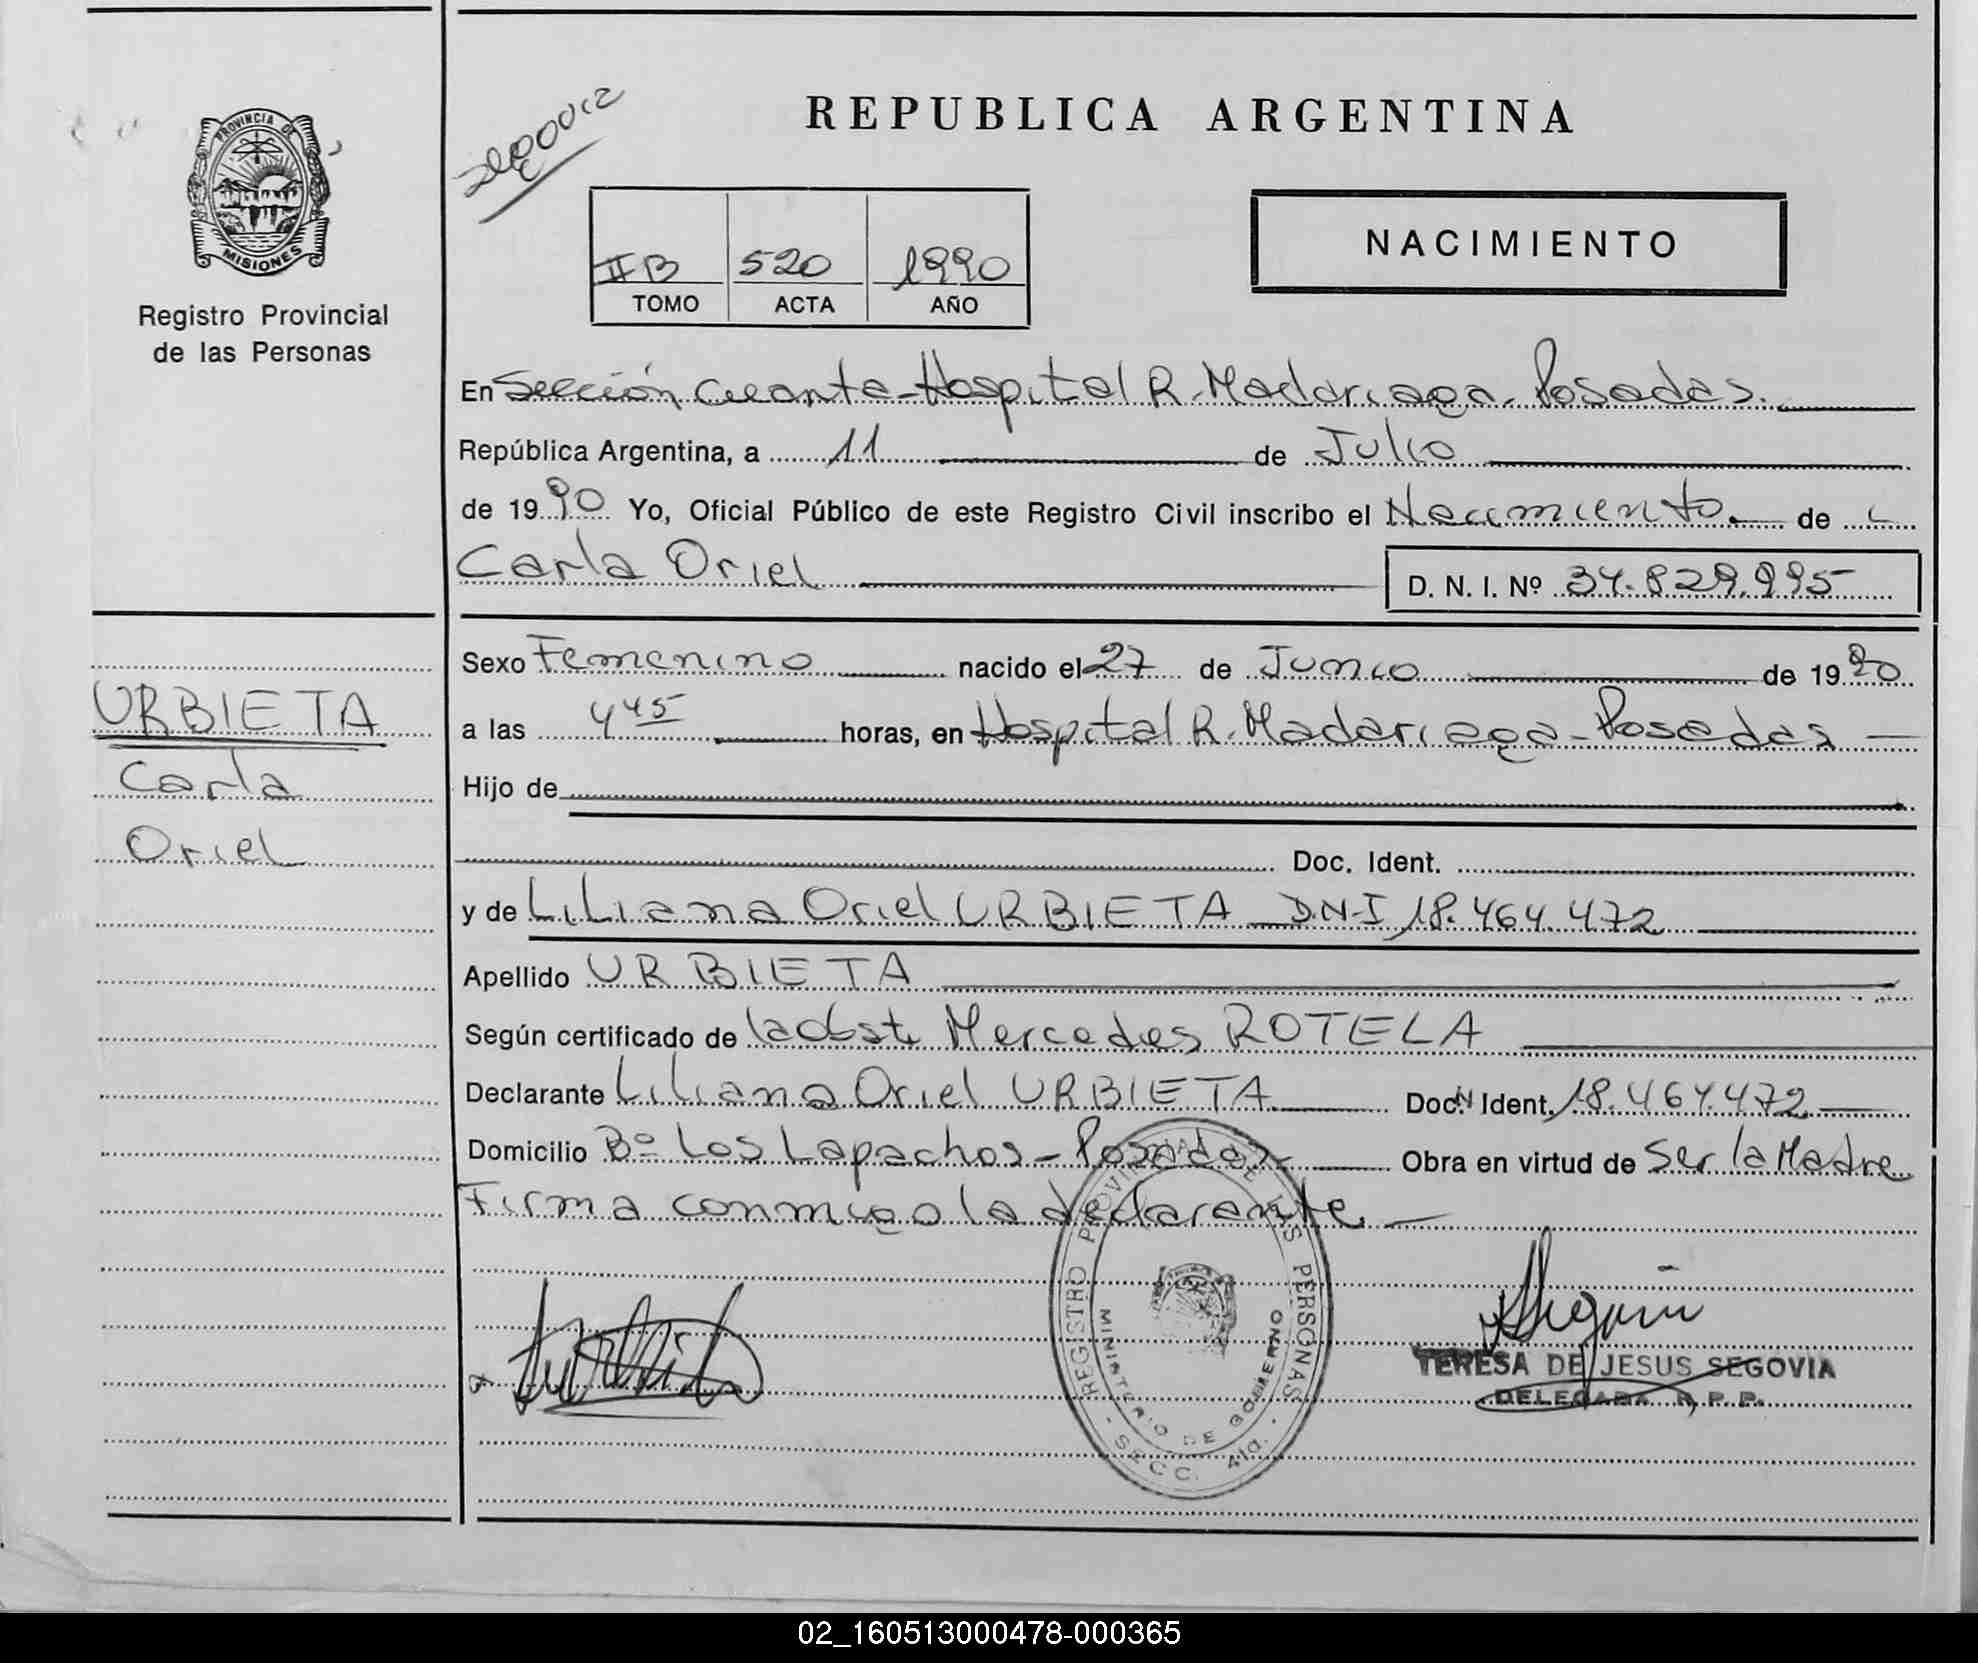 REPUBLICA ARGENTINA
PROVINCIA DE
MISIONES
Registro Provincial
de las Personas
II B 520 1990
TOMO ACTA AÑO
NACIMIENTO
En Sección Cuarta-Hospital R. Madariaga. Posadas.
República Argentina, a 11 de Julio
de 1990 Yo, Oficial Público de este Registro Civil inscribo el Nacimiento. de
Carla Oriel
D. N. I. Nº 34.829.995
Sexo Femenino nacido el 27 de Junio de 1990
a las 4 45 horas, en Hospital R. Madariaga-Posadas
Hijo de
Doc. Ident.
y de Liliana Oriel URBIETA D.N.I 18.464.472
Apellido URBIETA
Según certificado de la Obst. Mercedes ROTELA
Declarante Liliana Oriel URBIETA Doc. Ident. 18.464.472
Domicilio Bº Los Lapachos - Posadas Obra en virtud de Ser la Madre
Firma conmigo la declarante.
URBIETA
Carla
Oriel
REGISTRO PROVINCIAL DE LAS PERSONAS
MINISTERIO DE GOBIERNO
SECC. 4ta.
TERESA DE JESUS SEGOVIA
DELEGADA R.P.P.
02_160513000478-000365